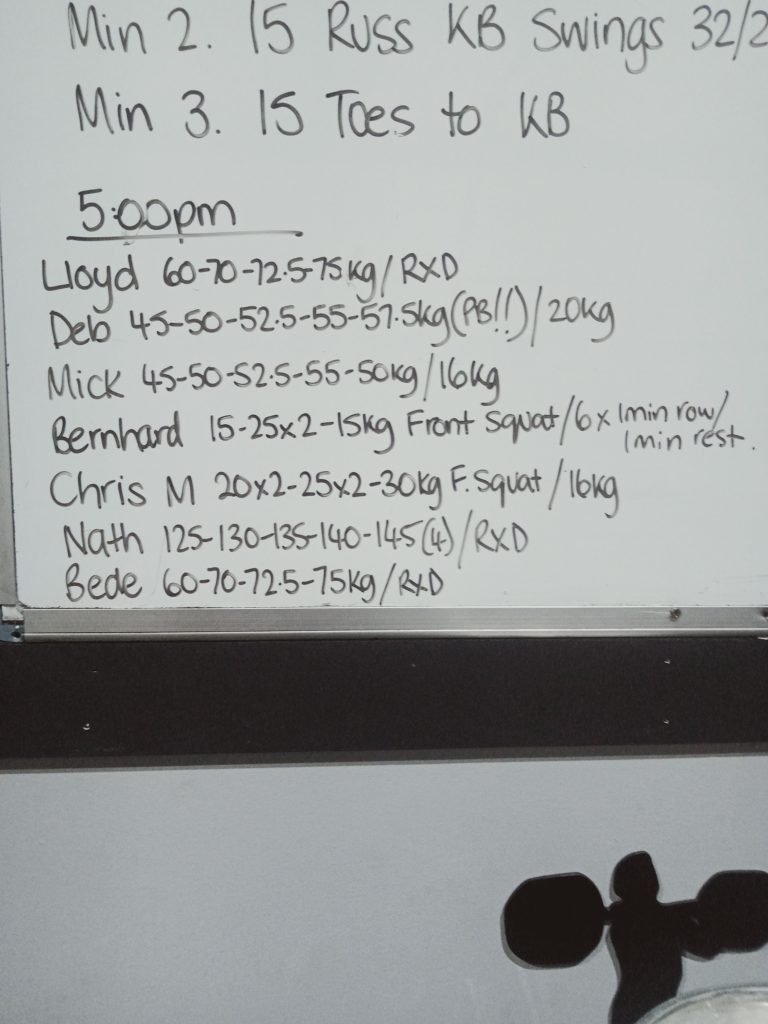 Min 2. 15 Russ KB Swings 32/2
Min 3. 15 Toes to KB
5:00pm
Lloyd 60-70-72.5-75kg/RXD
Deb 45-50-52.5-55-57.5kg(PB!!)/20kg
Mick 45-50-52.5-55-50kg/16kg
Bernhard 15-25x2-15kg Front Squat/6x 1min row/
1min rest.
Chris M 20x2-25x2-30kg F. Squat/16kg
Nath 125-130-135-140-145(4)/RXD
Bede 60-70-72.5-75kg/RXD